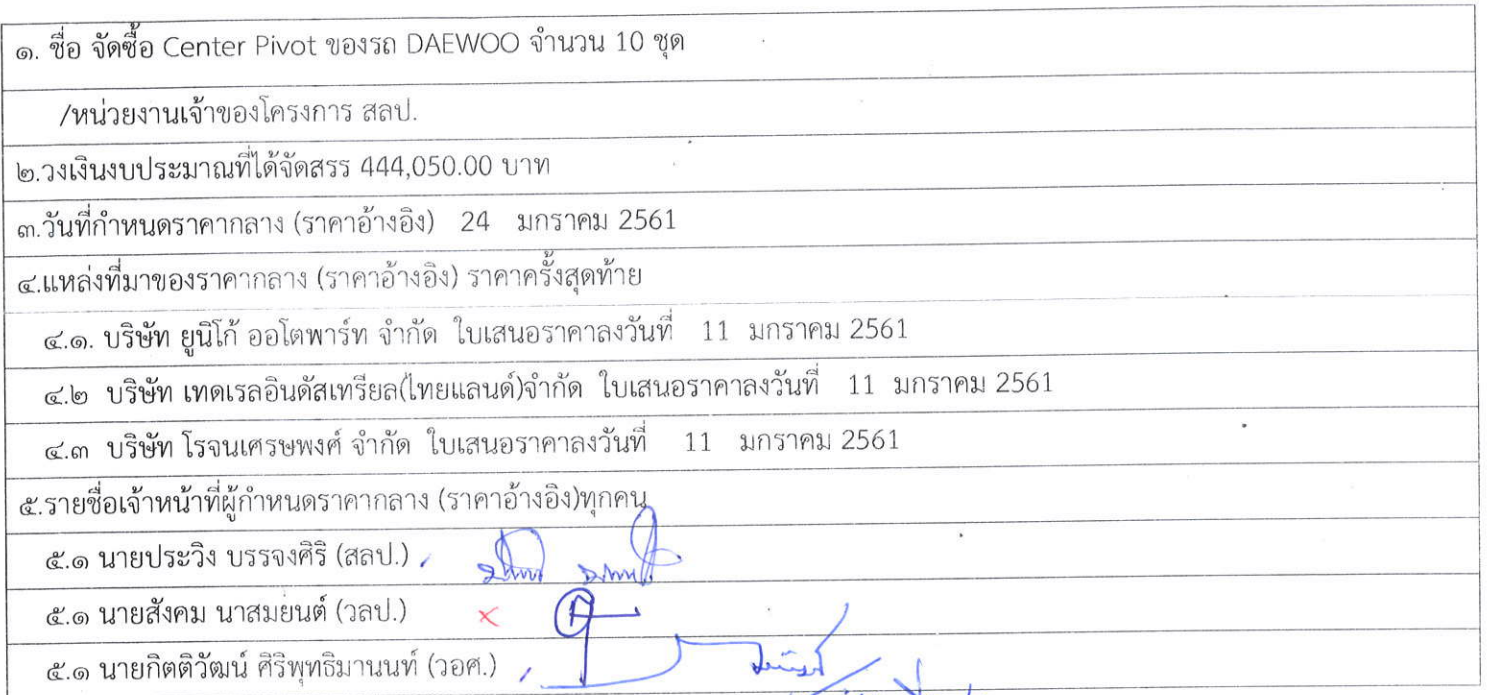 ๑. ชื่อ จัดซื้อ Center Pivot ของรถ DAEWOO จำนวน 10 ชุด
/หน่วยงานเจ้าของโครงการ สลป.
๒.วงเงินงบประมาณที่ได้จัดสรร 444,050.00 บาท
๓.วันที่กำหนดราคากลาง (ราคาอ้างอิง) 24 มกราคม 2561
๔.แหล่งที่มาของราคากลาง (ราคาอ้างอิง) ราคาครั้งสุดท้าย
๔.๑. บริษัท ยูนิโก้ ออโตพาร์ท จำกัด ใบเสนอราคาลงวันที่ 11 มกราคม 2561
๔.๒ บริษัท เทดเรลอินดัสเทรียล(ไทยแลนด์)จำกัด ใบเสนอราคาลงวันที่ 11 มกราคม 2561
๔.๓ บริษัท โรจนเศรษพงศ์ จำกัด ใบเสนอราคาลงวันที่ 11 มกราคม 2561
๕.รายชื่อเจ้าหน้าที่ผู้กำหนดราคากลาง (ราคาอ้างอิง)ทุกคน
๕.๑ นายประวิง บรรจงศิริ (สลป.)
๕.๑ นายสังคม นาสมยนต์ (วลป.)
๕.๑ นายกิตติวัฒน์ ศิริพุทธิมานนท์ (วอศ.)